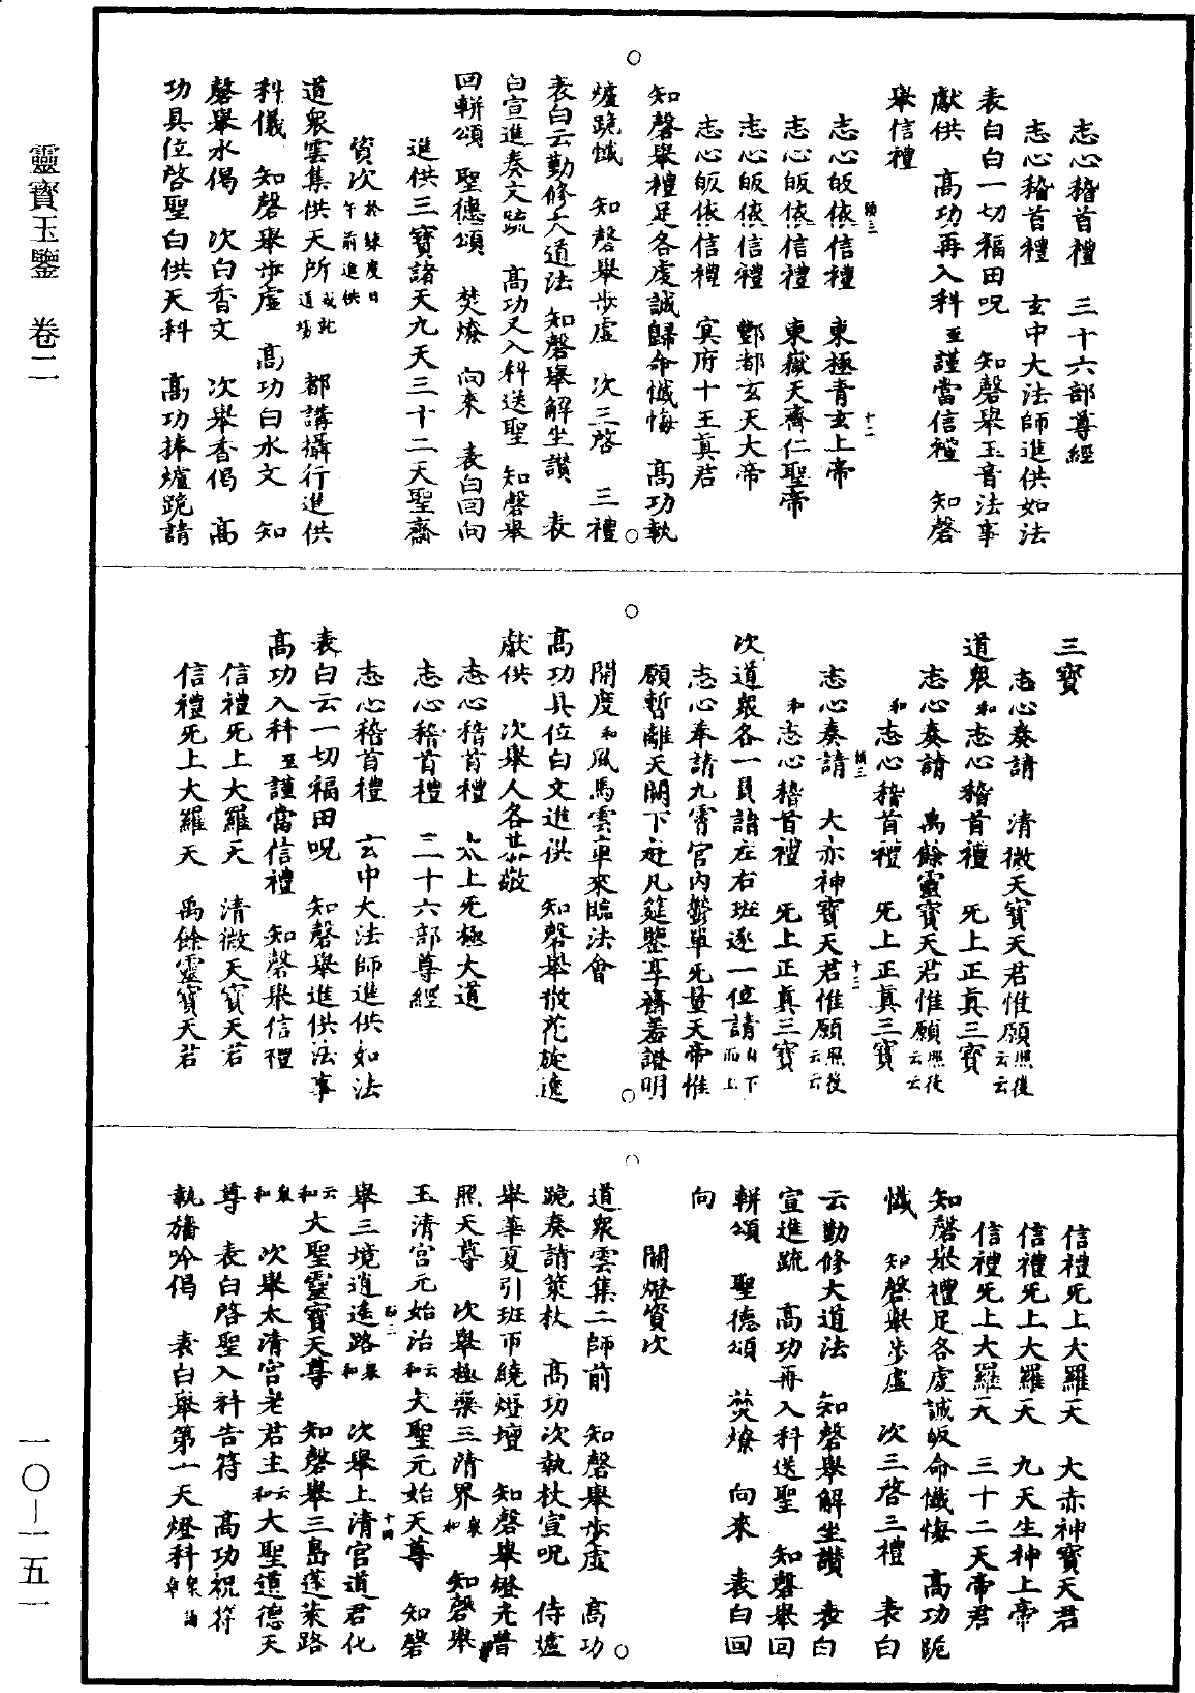 靈寶玉鑒 卷二
志心稽首禮 三十六部尊經
志心稽首禮 玄中大法師進供如法
表白白一切福田呪 知磬舉玉音法事
獻供 高功再入科至謹當信禮 知磬
舉信禮
志心皈依信禮 東極青玄上帝
志心皈依信禮 東嶽天齊仁聖帝
志心皈依信禮 酆都玄天大帝
志心皈依信禮 冥府十王真君
知磬舉禮足各虔誠歸命懺悔 高功執
爐跪懺 知磬舉步虛 次三啓 三禮
表白云勤修大道法 知磬舉解坐讚 表
白宣進奏文疏 高功又入科送聖 知磬舉
回軿頌 聖德頌 焚燎 向來 表白回向
進供三寶諸天九天三十二天聖齋
資次於煉度日午前進供
道衆雲集供天所或就道場 都講攝行進供
科儀 知磬舉步虛 高功白水文 知
磬舉水偈 次白香文 次舉香偈 高
功具位啓聖白供天科 高功捧爐跪請
三寶
志心奏請 清微天寶天君惟願照後云云
道衆和志心稽首禮 旡上正真三寶
志心奏請 禹餘靈寶天君惟願照後云云
和志心稽首禮 旡上正真三寶
志心奏請 大赤神寶天君惟願照後云云
和志心稽首禮 旡上正真三寶
次道衆各一員詣左右班逐一位請自下而上
志心奉請九霄官內鬱單旡量天帝惟
願暫離天闕下赴凡筵鑒享齋羞證明
開度和風馬雲車來臨法會
高功具位白文進供 知磬舉散花旋遶
獻供 次舉人各恭敬
志心稽首禮 太上旡極大道
志心稽首禮 三十六部尊經
志心稽首禮 玄中大法師進供如法
表白云一切福田呪 知磬舉進供法事
高功入科至謹當信禮 知磬舉信禮
信禮旡上大羅天 清微天寶天君
信禮旡上大羅天 禹餘靈寶天君
信禮旡上大羅天 大赤神寶天君
信禮旡上大羅天 九天生神上帝
信禮旡上大羅天 三十二天帝君
知磬舉禮足各虔誠皈命懺悔 高功跪
懺 知磬舉步虛 次三啓三禮 表白
云勤修大道法 知磬舉解坐讚 表白
宣進疏 高功再入科送聖 知磬舉回
軿頌 聖德頌 焚燎 向來 表白回
向
關燈資次
道衆雲集二師前 知磬舉步虛 高功
跪奏請策杖 高功次執杖宣呪 侍爐
舉華夏引班帀繞燈壇 知磬舉燈光普
照天尊 次舉極樂三清界衆和 知磬舉
玉清宮元始治和云大聖元始天尊 知磬
舉三境逍遙路衆和 次舉上清宮道君化
和云大聖靈寶天尊 知磬舉三島蓬萊路
衆和 次舉太清宮老君主和云大聖道德天
尊 表白啓聖入科告符 高功祝符
執旛吟偈 表白舉第一天燈科衆誦
一〇-一五一